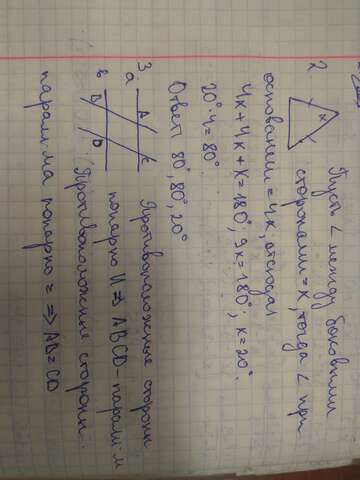 2
Пусть < между боковыми
сторонами = x, тогда < при
основании = 4x, отсюда:
4x + 4x + x = 180°; 9x = 180°; x = 20°.
20° · 4 = 80°
Ответ: 80°, 80°, 20°
3
a
b
A
B
C
D
Противоположные стороны
попарно II => ABCD - парал-м
(Противоположные стороны
парал-ма попарно = => AB = CD